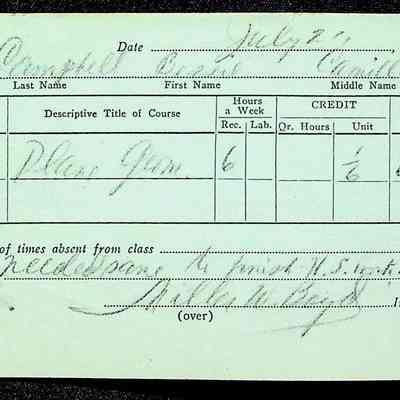 Date July 2
Campbell Bessie Camill
Last Name First Name Middle Name
Hours a Week CREDIT
Descriptive Title of Course Rec. Lab. Qr. Hours Unit
Plane Geom. 6 1/6
of times absent from class
to finish H. S. work
Willis W. Boyd
(over)